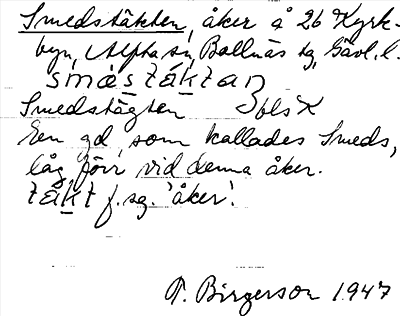 Smedstäkten, åker å 26 Kyrk-
byn, Alfta sn, Bollnäs tg, Gävl. l.
smɛ̀stáktan
Smedstägten
En gd, som kallades Smeds,
låg förr vid denna åker.
täkt f. sg. 'åker'.
T. Birgerson 1947